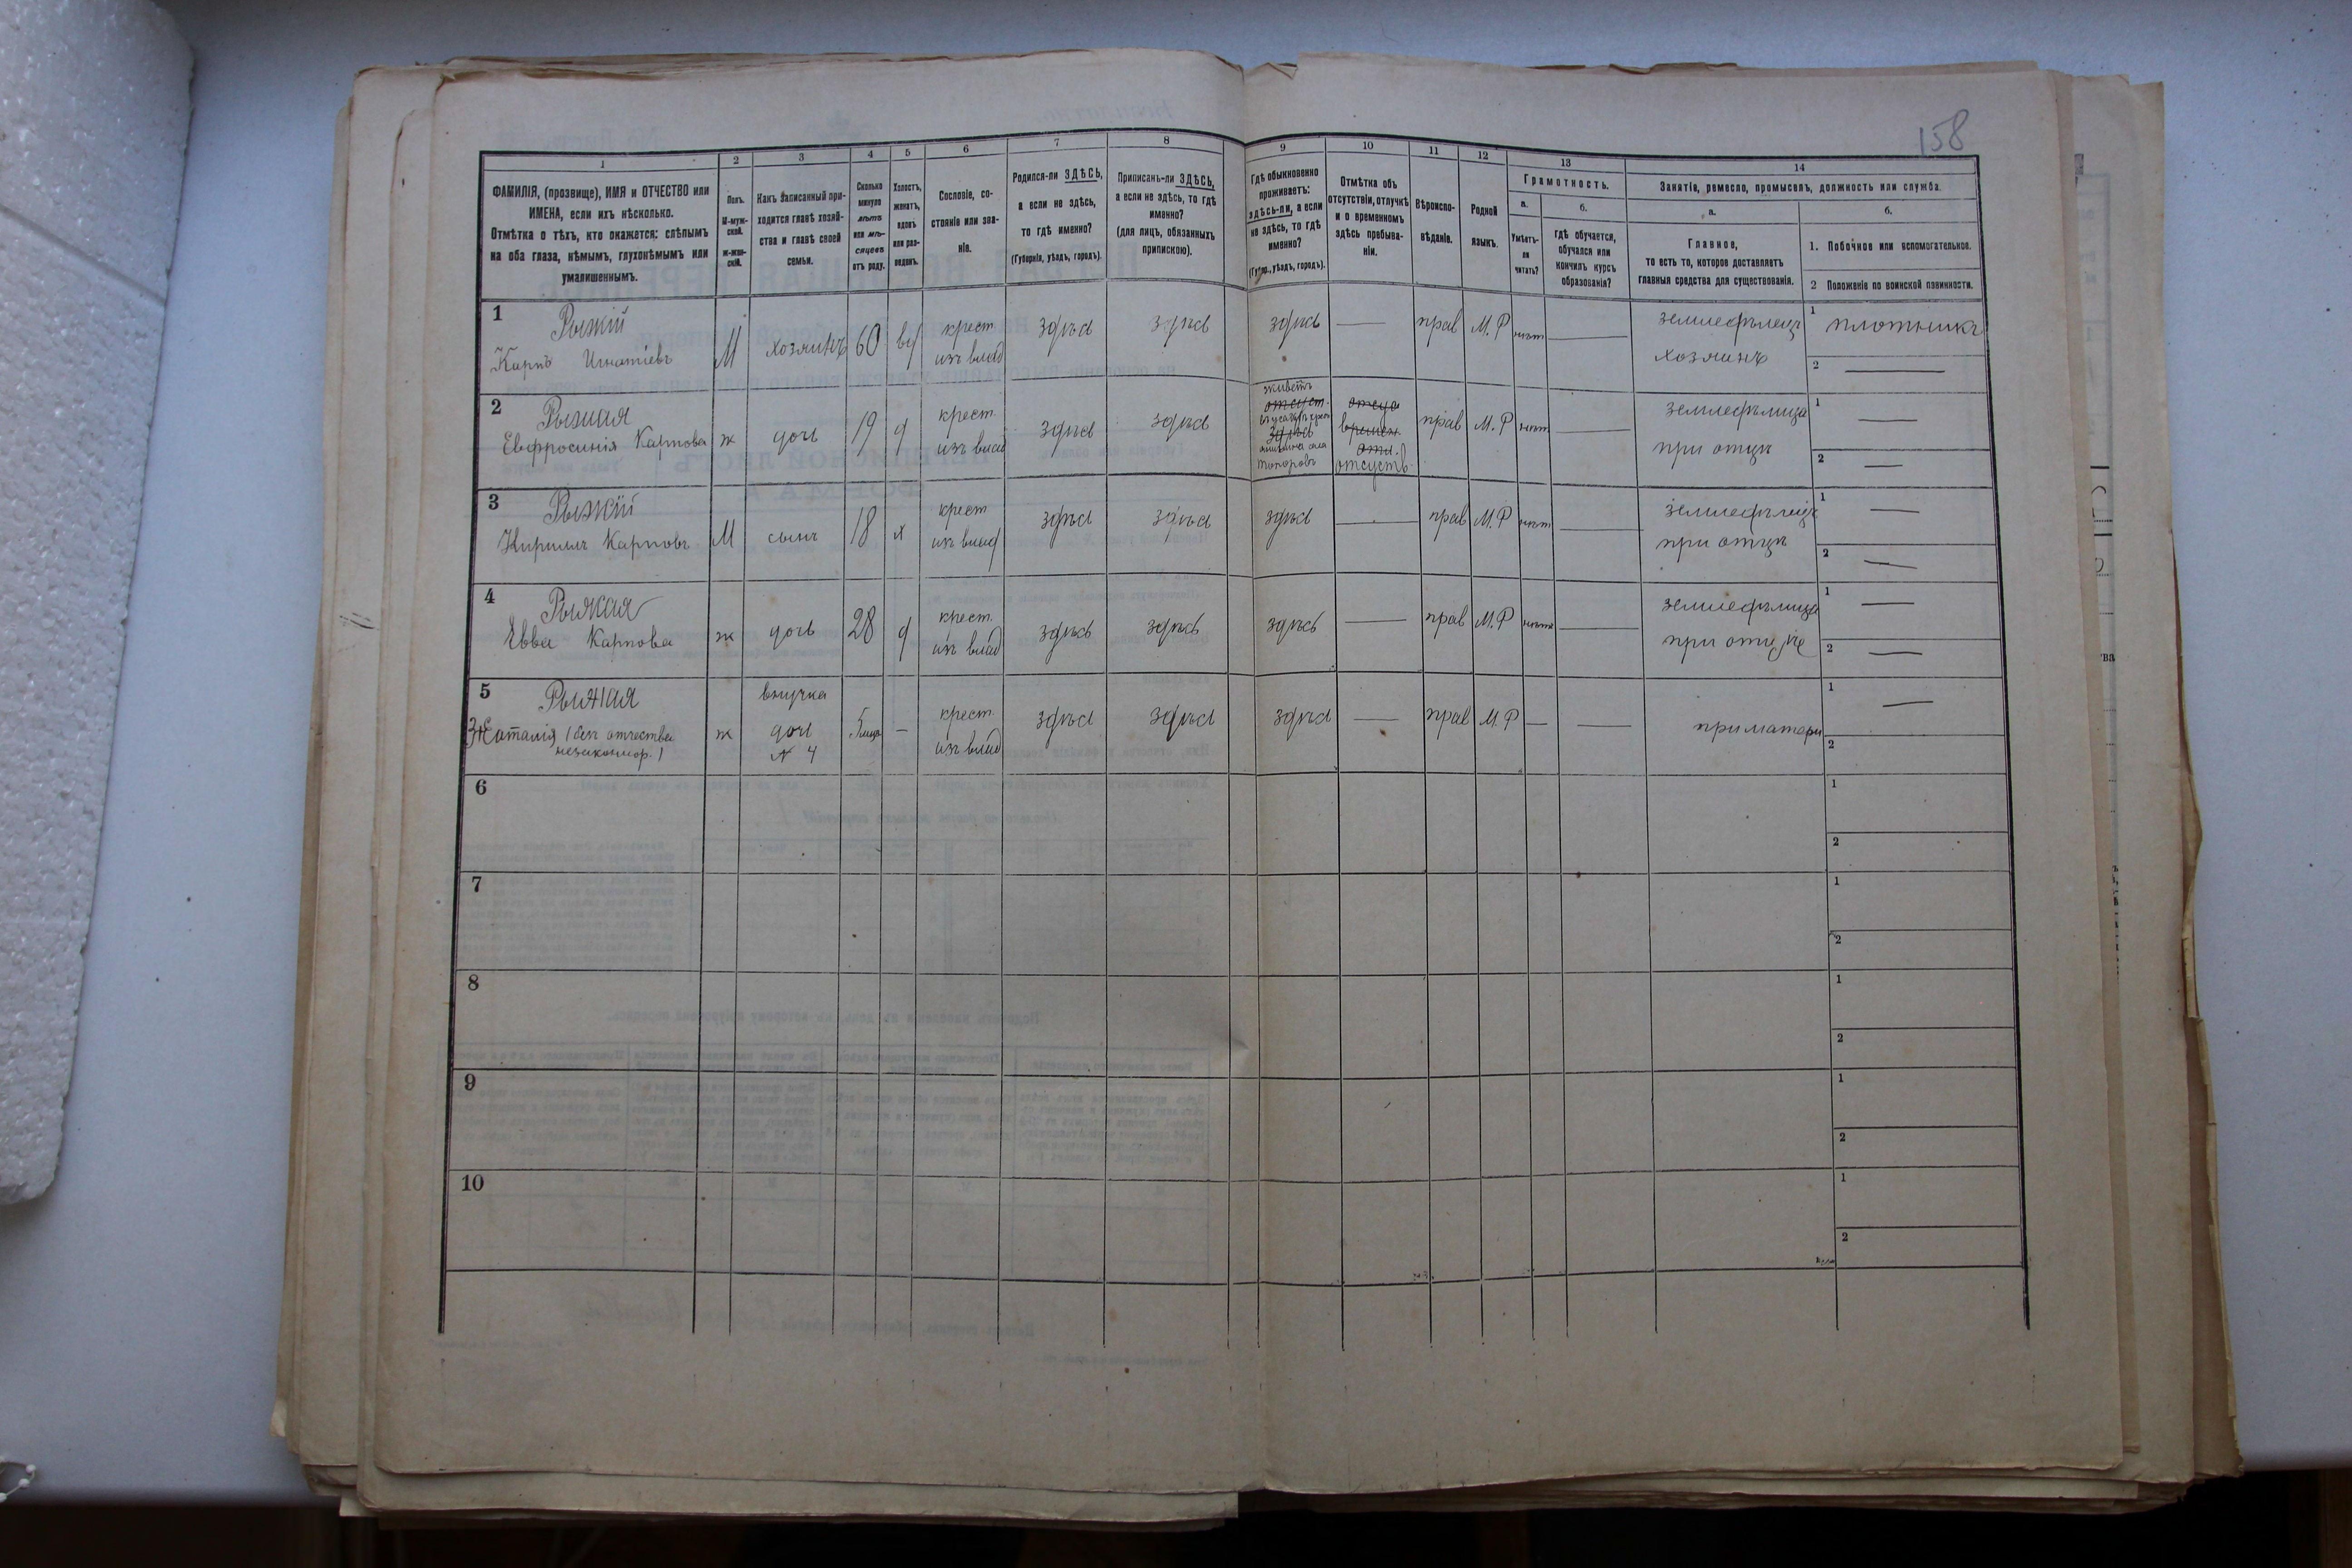 158
1
2
3
4
5
6
7
8
9
10
11
12
13
14
ФАМИЛІЯ, (прозвище), ИМЯ и ОТЧЕСТВО или
ИМЕНА, если ихъ нѣсколько.
Отмѣтка о тѣхъ, кто окажется: слѣпымъ
на оба глаза, нѣмымъ, глухонѣмымъ или
умалишеннымъ.
Полъ.
М-муж-
ской.
ж-жен-
скій.
Какъ записанный при-
ходится главѣ хозяй-
ства и главѣ своей
семьи.
Сколько
минуло
лѣтъ
или мѣ-
сяцевъ
отъ роду.
Холостъ,
женатъ,
вдовъ
или раз-
веденъ.
Сословіе, со-
стояніе или зва-
ніе.
Родился-ли ЗДѢСЬ,
а если не здѣсь,
то гдѣ именно?
(Губернія, уѣздъ, городъ).
Приписанъ-ли ЗДѢСЬ,
а если не здѣсь, то гдѣ
именно?
(для лицъ, обязанныхъ
припискою).
Гдѣ обыкновенно
проживаетъ:
здѣсь-ли, а если
не здѣсь, то гдѣ
именно?
(Губер., уѣздъ, городъ).
Отмѣтка объ
отсутствіи, отлучкѣ
и о временномъ
здѣсь пребыва-
ніи.
Вѣроиспо-
вѣданіе.
Родной
языкъ.
Грамотность.
а.
Умѣетъ-
ли
читать?
б.
Гдѣ обучается,
обучался или
кончилъ курсъ
образованія?
Занятіе, ремесло, промыселъ, должность или служба.
а.
Главное,
то есть то, которое доставляетъ
главныя средства для существованія.
б.
1. Побочное или вспомогательное.
2 Положеніе по воинской повинности.
1
Рыжій
Карпъ Игнатіевъ
М
хозяинъ
60
вд
крест.
изъ влад
здѣсь
здѣсь
здѣсь
—
прав
М.Р
нѣтъ
—
земледѣлецъ
хозяинъ
1 плотникъ
2 —
2
Рыжая
Евфросинія Карпова
ж
дочь
19
д
крест.
изъ влад
здѣсь
здѣсь
живетъ
отсут.
здѣсь
села
Топоровъ
отсут
времен
отсутств
прав
М.Р
нѣт
—
земледѣлица
при отцѣ
1 —
2 —
3
Рыжій
Кириллъ Карповъ
М
сынъ
18
х
крест
изъ влад
здѣсь
здѣсь
здѣсь
—
прав
М.Р
нѣт
—
земледѣлецъ
при отцѣ
1 —
2 —
4
Рыжая
Евва Карпова
ж
дочь
28
д
крест.
изъ влад
здѣсь
здѣсь
здѣсь
—
прав
М.Р
нѣтъ
—
земледѣлица
при отцѣ
1 —
2 —
5
Рыжая
Наталія (безъ отчества
незаконнор.)
ж
внучка
дочь
№ 4
5 мѣс
—
крест.
изъ влад
здѣсь
здѣсь
здѣсь
—
прав
М.Р
—
—
при матери
1 —
2
6
1
2
7
1
2
8
1
2
9
1
2
10
1
2